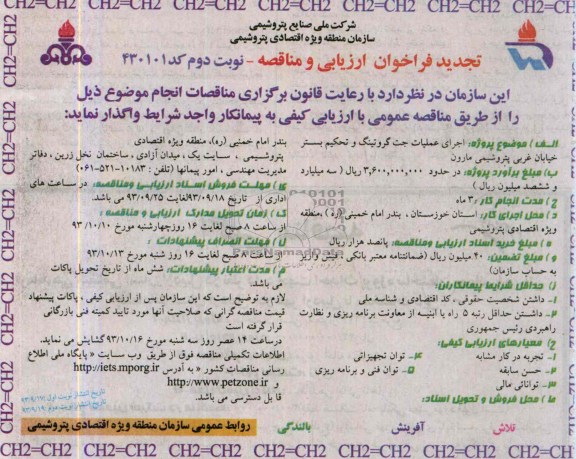 شرکت ملی صنایع پتروشیمی
سازمان منطقه ویژه اقتصادی پتروشیمی
تجدید فراخوان ارزیابی و مناقصه - نوبت دوم کد ۴۳۰۱۰۱
این سازمان در نظر دارد با رعایت قانون برگزاری مناقصات انجام موضوع ذیل
را از طریق مناقصه عمومی با ارزیابی کیفی به پیمانکار واجد شرایط واگذار نماید:
الف) موضوع پروژه: اجرای عملیات جت گروتینگ و تحکیم بستر
خیابان غربی پتروشیمی مارون
ب) مبلغ برآورد پروژه: در حدود ۳,۶۰۰,۰۰۰,۰۰۰ ریال ( سه میلیارد
و ششصد میلیون ریال )
ج) مدت انجام کار: ۳ ماه
د) محل اجرای کار: استان خوزستان ، بندر امام خمینی (ره) ،منطقه
ویژه اقتصادی پتروشیمی
ه) مبلغ خرید اسناد ارزیابی ومناقصه: پانصد هزار ریال
و) مبلغ تضمین: ۴۰ میلیون ریال (ضمانتنامه معتبر بانکی یا فیش واریز
به حساب سازمان)
ز) حداقل شرایط پیمانکاران:
۱- داشتن شخصیت حقوقی ، کد اقتصادی و شناسه ملی
۲- داشتن حداقل رتبه ۵ راه یا ابنیه از معاونت برنامه ریزی و نظارت
راهبردی رئیس جمهوری
ح) معیارهای ارزیابی کیفی:
۱- تجربه در کار مشابه
۴- توان تجهیزاتی
۲- حسن سابقه
۵- توان فنی و برنامه ریزی
۳- توانائی مالی
ط) محل فروش و تحویل اسناد:
بندر امام خمینی (ره)، منطقه ویژه اقتصادی
پتروشیمی ، سایت یک ، میدان آزادی ، ساختمان نخل زرین ، دفاتر
مدیریت مهندسی ، امور پیمانها (تلفن : ۱۰۱۸۳-۵۲۱-۰۶۱)
ی) مهلت فروش اسناد ارزیابی ومناقصه: در ساعت های
اداری از تاریخ ۹۳/۰۹/۱۸لغایت ۹۳/۰۹/۲۵ می باشد.
ک) زمان تحویل مدارک ارزیابی و مناقصه :
از ساعت ۸ صبح لغایت ۱۶ روزچهارشنبه مورخ ۹۳/۱۰/۱۰
ل) مهلت انصراف پیشنهادات :
از ساعت ۸ صبح لغایت ۱۶ روز شنبه مورخ ۹۳/۱۰/۱۳
م) مدت اعتبار پیشنهادات: شش ماه از تاریخ تحویل پاکات
می باشد
لازم به توضیح است که این سازمان پس از ارزیابی کیفی ، پاکات پیشنهاد
قیمت مناقصه گرانی که صلاحیت آنها مورد تایید کمیته فنی بازرگانی
قرار گرفته است
درساعت ۱۴ عصر روز سه شنبه مورخ ۹۳/۱۰/۱۶گشایش می نماید.
اطلاعات تکمیلی مناقصه فوق از طریق وب سایت « پایگاه ملی اطلاع
رسانی مناقصات کشور » به آدرس http://iets.mporg.ir
و http://www.petzone.ir
قابل دسترسی می باشد.
تلاش
آفرینش
بالندگی
روابط عمومی سازمان منطقه ویژه اقتصادی پتروشیمی